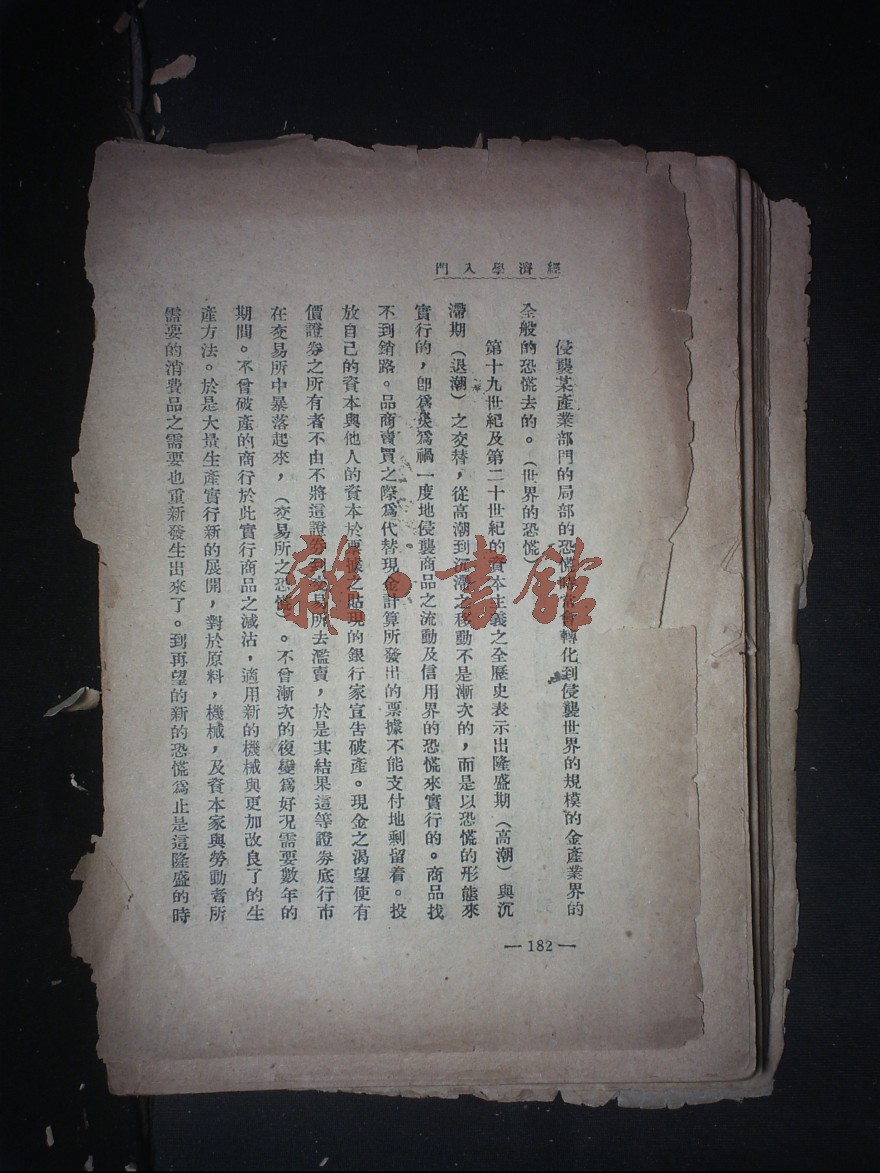 經濟學入門
侵襲某產業部門的局部的恐慌時常會轉化到侵襲世界的規模的金產業界的
全般的恐慌去的。（世界的恐慌）
第十九世紀及第二十世紀的資本主義之全歷史表示出隆盛期（高潮）與沉
滯期（退潮）之交替，從高潮到沉滯之移動不是漸次的，而是以恐慌的形態來
實行的，卽爲災爲禍一度地侵襲商品之流動及信用界的恐慌來實行的。商品找
不到銷路。品商賣買之際爲代替現金計算所發出的票據不能支付地剩留着。投
放自己的資本與他人的資本於票據之貼現的銀行家宣告破產。現金之渴望使有
價證券之所有者不由不將這證券到交易所去濫賣，於是其結果這等證券底行市
在交易所中暴落起來，（交易所之恐慌）。不曾漸次的復變爲好況需要數年的
期間。不曾破產的商行於此實行商品之減沽，適用新的機械與更加改良了的生
產方法。於是大量生產實行新的展開，對於原料，機械，及資本家與勞動者所
需要的消費品之需要也重新發生出來了。到再望的新的恐慌爲止是這隆盛的時
— 182 —
雜·書館